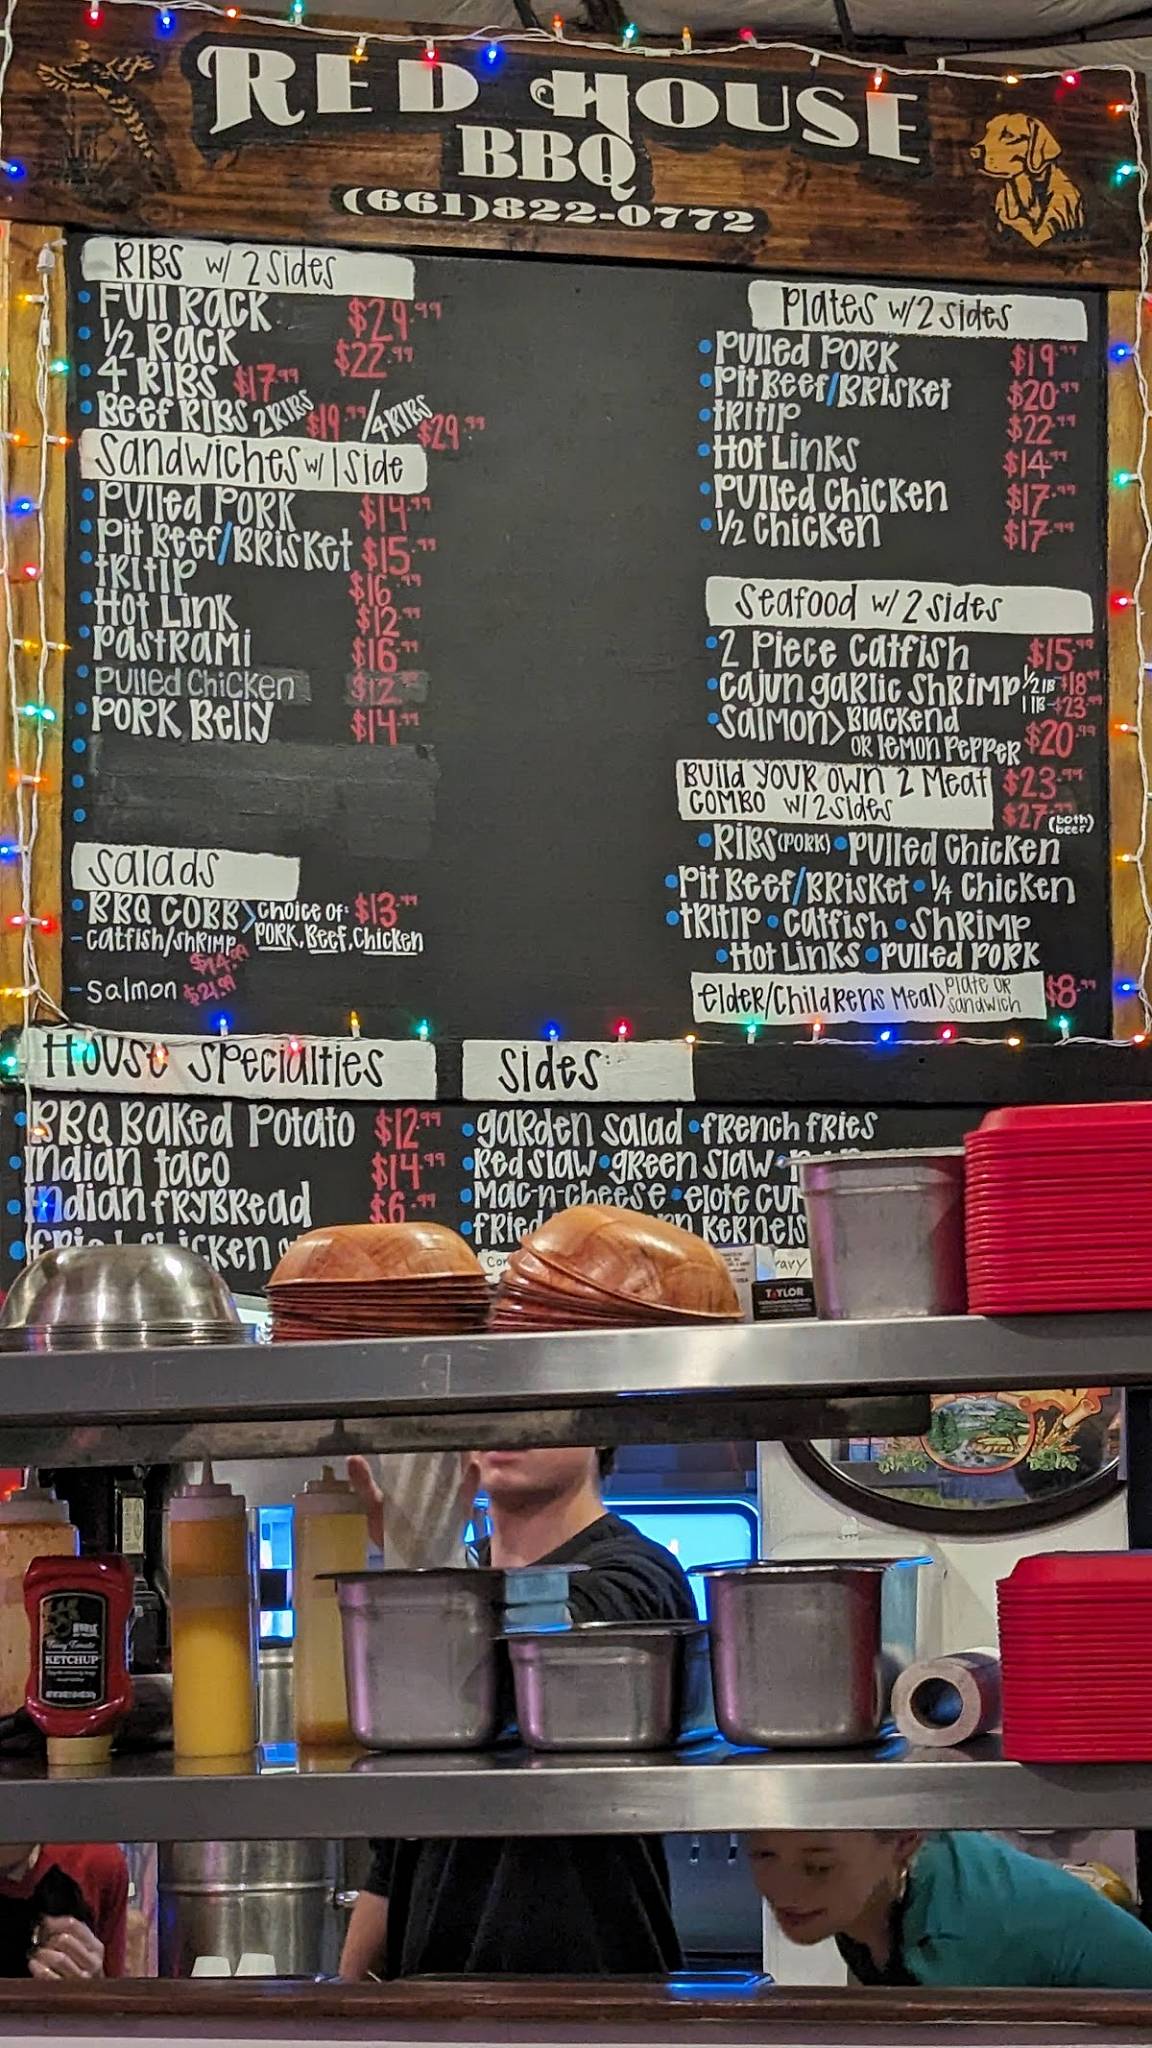 RED HOUSE
BBQ
(661)822-0772
RIBS w/ 2 sides
Full Rack $29.99
1/2 Rack $22.99
4 Ribs $17.99
Beef Ribs 2 Ribs $19.99/4 Ribs $29.99
Sandwiches w/ 1 side
Pulled Pork $14.99
Pit Beef/Brisket $15.99
Tritip $16.99
Hot Link $12.99
Pastrami $16.99
Pulled Chicken $12.99
Pork Belly $14.99
Salads
BBQ Cobb > Choice of: $13.99
Pork, Beef, Chicken
- Catfish/Shrimp $14.99
- Salmon $21.99
Plates w/ 2 sides
Pulled Pork $19.99
Pit Beef/Brisket $20.99
Tritip $22.99
Hot Links $14.99
Pulled Chicken $17.99
1/2 Chicken $17.99
Seafood w/ 2 sides
2 Piece Catfish $15.99
Cajun Garlic Shrimp 1/2 lb - $18.99
1 lb - $23.99
Salmon > Blackend
or Lemon Pepper $20.99
Build Your Own 2 Meat $23.99
Combo w/ 2 sides $27.99 (both beef)
Ribs (Pork) • Pulled Chicken
Pit Beef/Brisket • 1/4 Chicken
Tritip • Catfish • Shrimp
Hot Links • Pulled Pork
Elder/Childrens Meal > Plate or Sandwich $8.99
House Specialties
BBQ Baked Potato $12.99
Indian Taco $14.99
Indian Frybread $6.99
Chicken
Sides:
Garden Salad • French Fries
Red Slaw • Green Slaw
Mac-n-Cheese • Elote
Fried Kernels
TAYLOR
HOUSE
Fancy Tomato
KETCHUP